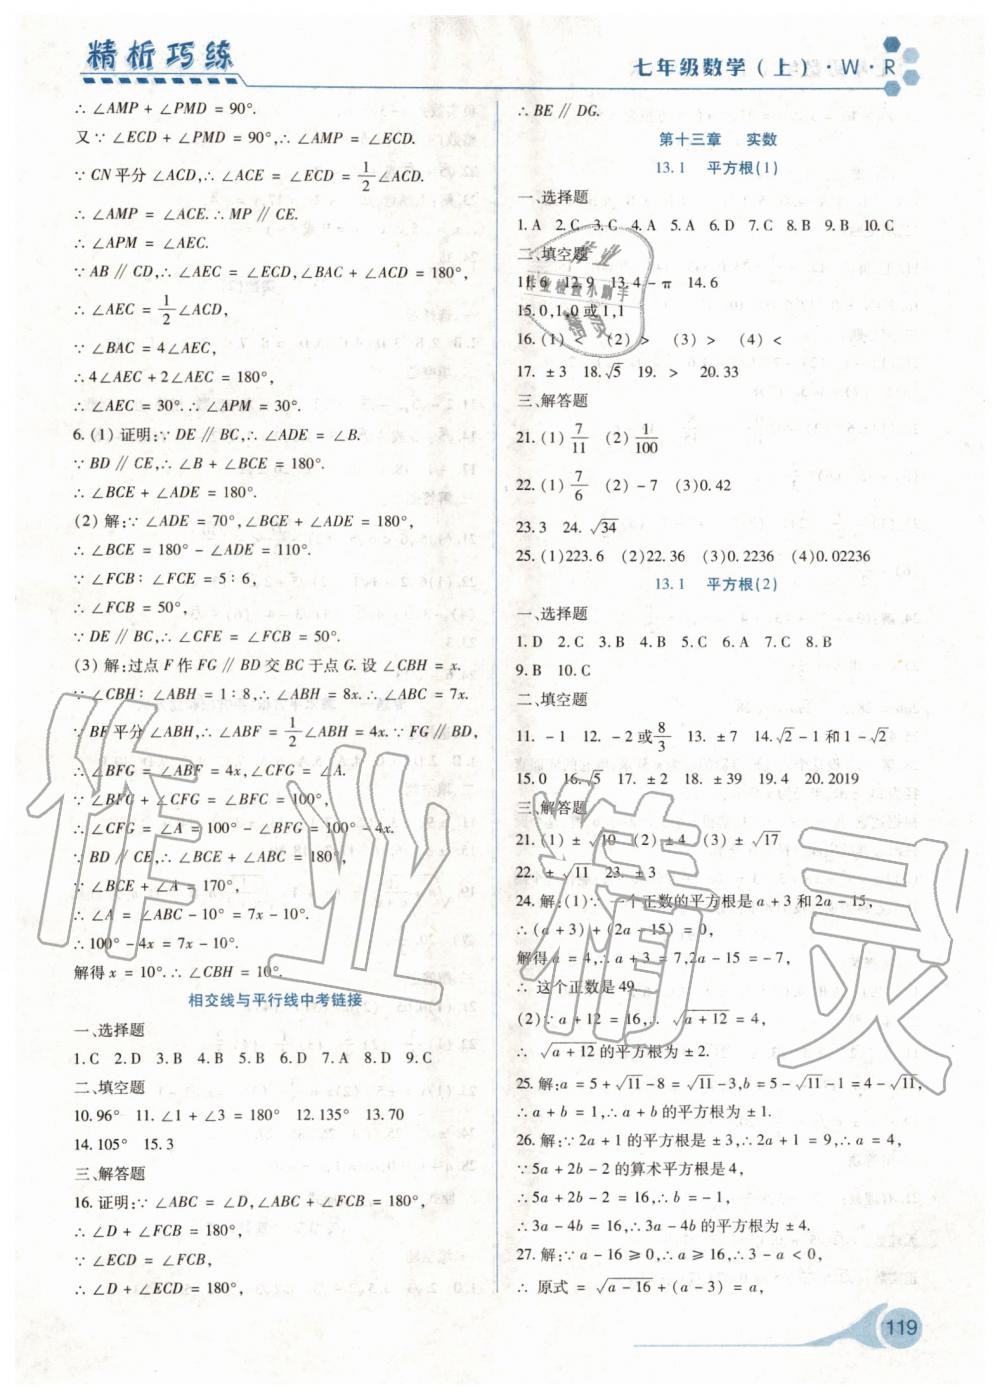 精析巧练
七年级数学(上)·W·R
∴ ∠AMP + ∠PMD = 90°.
又∵ ∠ECD + ∠PMD = 90°, ∴ ∠AMP = ∠ECD.
∵ CN平分 ∠ACD, ∴ ∠ACE = ∠ECD = 1/2 ∠ACD.
∴ ∠AMP = ∠ACE. ∴ MP ∥ CE.
∴ ∠APM = ∠AEC.
∵ AB ∥ CD, ∴ ∠AEC = ∠ECD, ∠BAC + ∠ACD = 180°,
∴ ∠AEC = 1/2 ∠ACD,
∴ ∠BAC = 4∠AEC,
∴ 4∠AEC + 2∠AEC = 180°,
∴ ∠AEC = 30°. ∴ ∠APM = 30°.
6. (1) 证明: ∵ DE ∥ BC, ∴ ∠ADE = ∠B.
∵ BD ∥ CE, ∴ ∠B + ∠BCE = 180°.
∴ ∠BCE + ∠ADE = 180°.
(2) 解: ∵ ∠ADE = 70°, ∠BCE + ∠ADE = 180°,
∴ ∠BCE = 180° - ∠ADE = 110°.
∵ ∠FCB : ∠FCE = 5 : 6,
∴ ∠FCB = 50°,
∵ DE ∥ BC, ∴ ∠CFE = ∠FCB = 50°.
(3) 解:过点 F 作 FG ∥ BD 交 BC 于点 G. 设 ∠CBH = x.
∵ ∠CBH : ∠ABH = 1 : 8, ∴ ∠ABH = 8x. ∴ ∠ABC = 7x.
∵ BF 平分 ∠ABH, ∴ ∠ABF = 1/2 ∠ABH = 4x. ∵ FG ∥ BD,
∴ ∠BFG = ∠ABF = 4x, ∠CFG = ∠A.
∵ ∠BFG + ∠CFG = ∠BFC = 100°,
∴ ∠CFG = ∠A = 100° - ∠BFG = 100° - 4x.
∵ BD ∥ CE, ∴ ∠BCE + ∠ABC = 180°,
∵ ∠BCE + ∠A = 170°,
∴ ∠A = ∠ABC - 10° = 7x - 10°.
∴ 100° - 4x = 7x - 10°.
解得 x = 10°. ∴ ∠CBH = 10°.
相交线与平行线中考链接
一、选择题
1. C 2. D 3. B 4. B 5. C 6. D 7. A 8. D 9. C
二、填空题
10. 96° 11. ∠1 + ∠3 = 180° 12. 135° 13. 70
14. 105° 15. 3
三、解答题
16. 证明: ∵ ∠ABC = ∠D, ∠ABC + ∠FCB = 180°,
∴ ∠D + ∠FCB = 180°,
∵ ∠ECD = ∠FCB,
∴ ∠D + ∠ECD = 180°,
∴ BE ∥ DG.
第十三章 实数
13.1 平方根(1)
一、选择题
1. A 2. C 3. C 4. A 5. A 6. D 7. C 8. B 9. B 10. C
二、填空题
11. 6 12. 9 13. 4 - π 14. 6
15. 0,1,0 或 1,1
16. (1) < (2) > (3) > (4) <
17. ±3 18. √5 19. > 20. 33
三、解答题
21. (1) 7/11 (2) 1/100
22. (1) 7/6 (2) -7 (3) 0.42
23. 3 24. √34
25. (1) 223.6 (2) 22.36 (3) 0.2236 (4) 0.02236
13.1 平方根(2)
一、选择题
1. D 2. C 3. B 4. B 5. C 6. A 7. C 8. B
9. B 10. C
二、填空题
11. -1 12. -2 或 8/3 13. ±7 14. √2 - 1 和 1 - √2
15. 0 16. √5 17. ±2 18. ±39 19. 4 20. 2019
三、解答题
21. (1) ±√10 (2) ±4 (3) ±√17
22. ±√11 23. ±3
24. 解:(1) ∵ 一个正数的平方根是 a + 3 和 2a - 15,
∴ (a + 3) + (2a - 15) = 0,
解得 a = 4, ∴ a + 3 = 7, 2a - 15 = -7,
∴ 这个正数是 49.
(2) ∵ a + 12 = 16, ∴ √(a + 12) = 4,
∴ √(a + 12) 的平方根为 ±2.
25. 解: a = 5 + √11 - 8 = √11 - 3, b = 5 - √11 - 1 = 4 - √11,
∴ a + b = 1, ∴ a + b 的平方根为 ±1.
26. 解: ∵ 2a + 1 的平方根是 ±3, ∴ 2a + 1 = 9, ∴ a = 4,
∵ 5a + 2b - 2 的算术平方根是 4,
∴ 5a + 2b - 2 = 16, ∴ b = -1,
∴ 3a - 4b = 16, ∴ 3a - 4b 的平方根为 ±4.
27. 解: ∵ a - 16 ≥ 0, ∴ a ≥ 16, ∴ 3 - a < 0,
∴ 原式 = √(a - 16) + (a - 3) = a,
119
作业精灵
作业
作业检查小助手
精灵